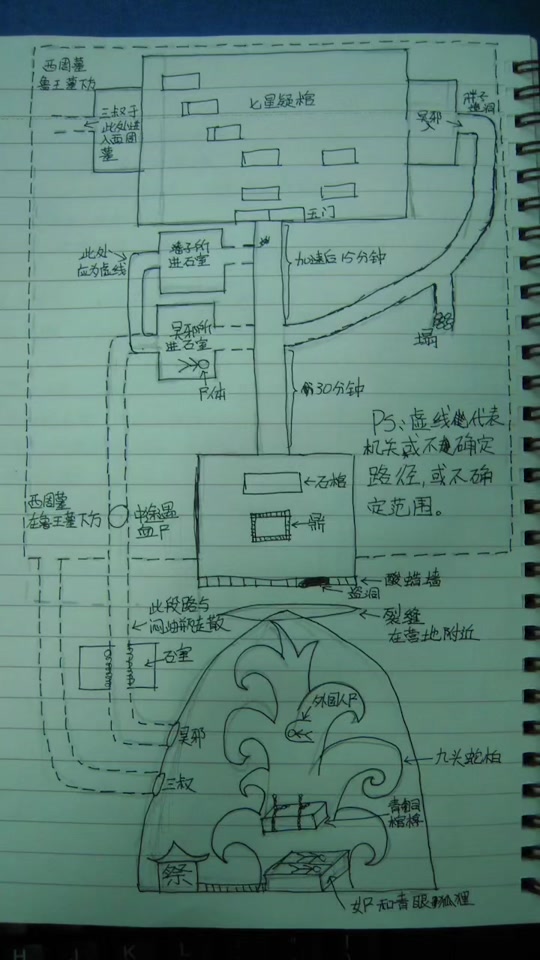 西周墓
鲁王墓下方
三叔于
此处进
入西周
墓
七星疑棺
吴邪
胖子
盗洞
玉门
此处
应为虚线
潘子所
进石室
加速后15分钟
吴邪所
进石室
尸体
塌
前30分钟
PS:虚线代表
机关或不确定
路径,或不确
定范围。
石棺
鼎
西周墓
在鲁王墓下方
中途遇
血尸
酸蜡墙
盗洞
此段路与
闷油瓶走散
裂缝
在营地附近
石室
外国人尸
吴邪
九头蛇柏
三叔
青铜
棺椁
祭
女尸和青眼狐狸
H J K L